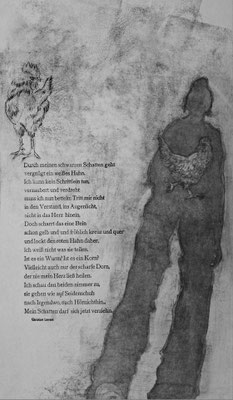 Durch meinen schwarzen Schatten geht
vergnügt ein weißes Huhn.
Ich kann kein Schrittlein tun,
verzaubert und verdreht
muss ich nun
in den Verstand, im Augenlicht,
nicht in das Herz hinein.
Doch scharrt das eine Bein
schon gelb und und fröhlich kreuz und quer
und lockt den roten Hahn daher.
Ich weiß nicht was sie teilen.
Ist es ein Wurm? Ist es ein Korn?
Vielleicht auch nur der scharfe Dorn,
der nie mein Herz ließ heilen.
Ich schau den beiden immer zu,
sie gehen wie auf Seidenschuh
nach Irgendwo, nach
Mein Schatten darf sich jetzt
Christine Lavant